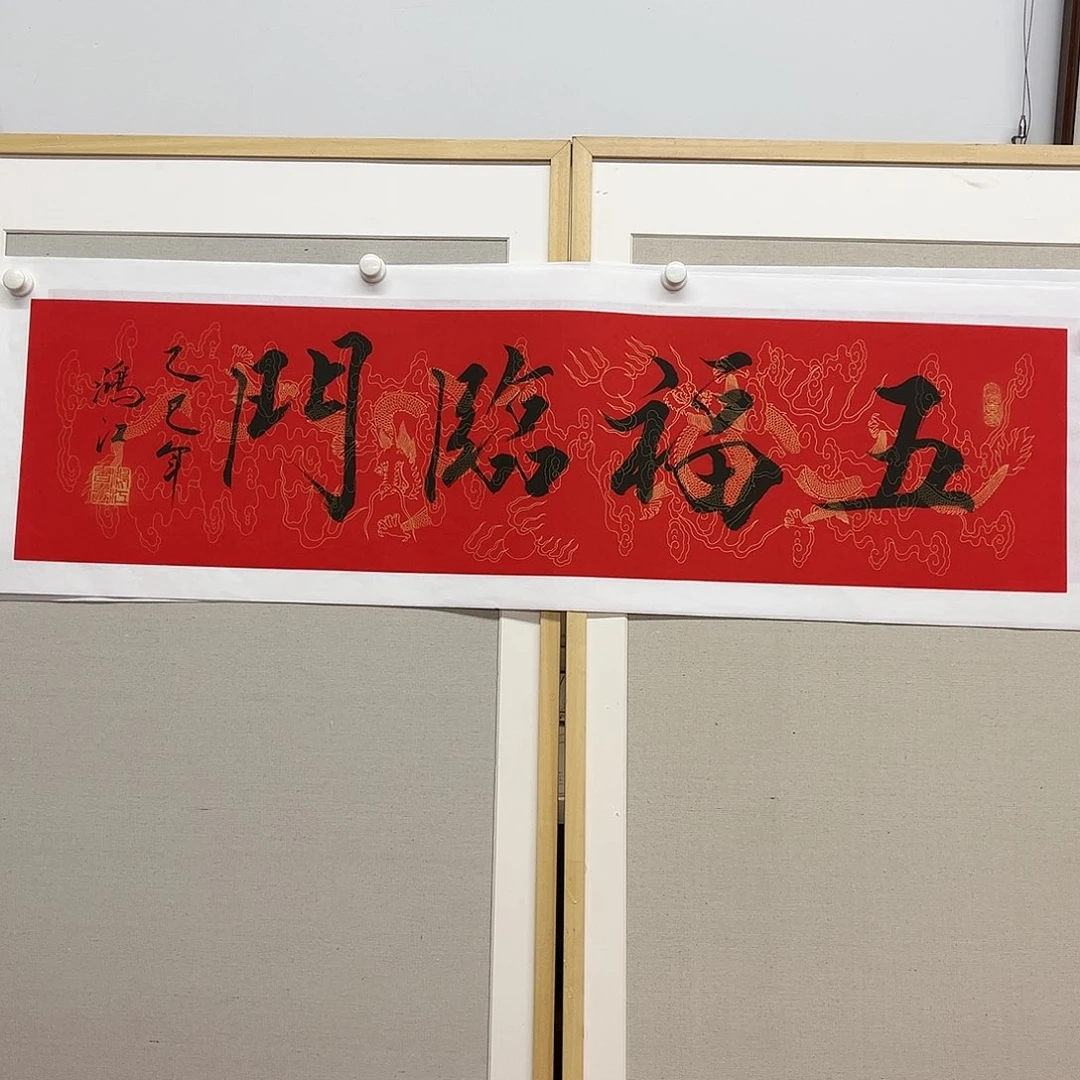 五福臨門
乙巳年
鴻江